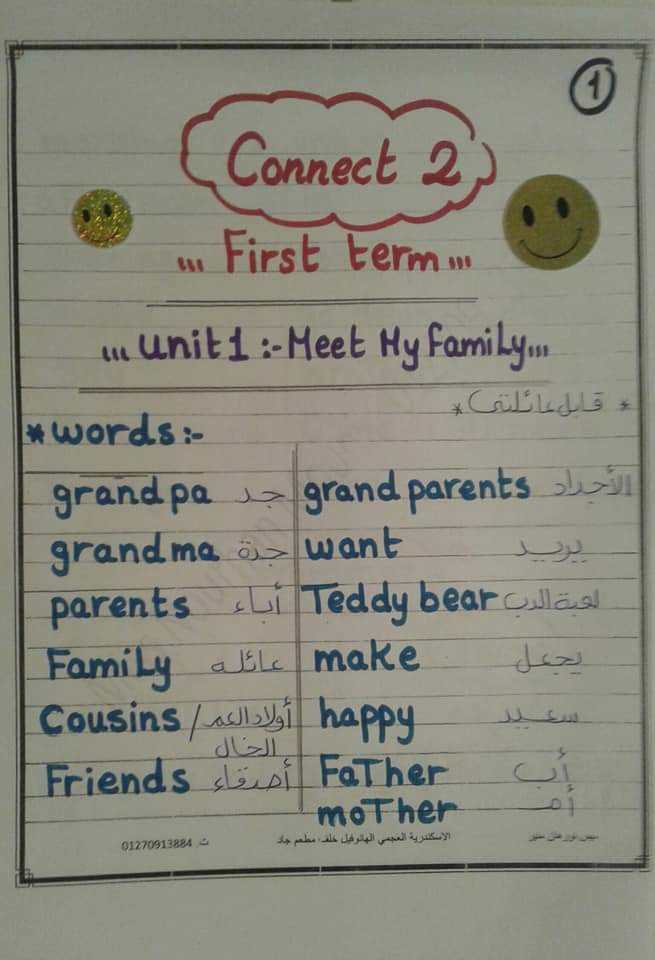 1
Connect 2
... First term ...
... unit 1 :- Meet My Family ...
* قابل عائلتى *
* words :-
grandpa جد grandparents الأجداد
grandma جدة want يريد
parents أباء Teddy bear لعبة الدب
Family عائله make يجعل
Cousins / أولاد العم happy سعيد
الخال
Friends أصدقاء FaTher أب
moTher أم
ميس نورهان منير الاسكندرية العجمي الهانوفيل خلف مطعم جاد ت. 01270913884